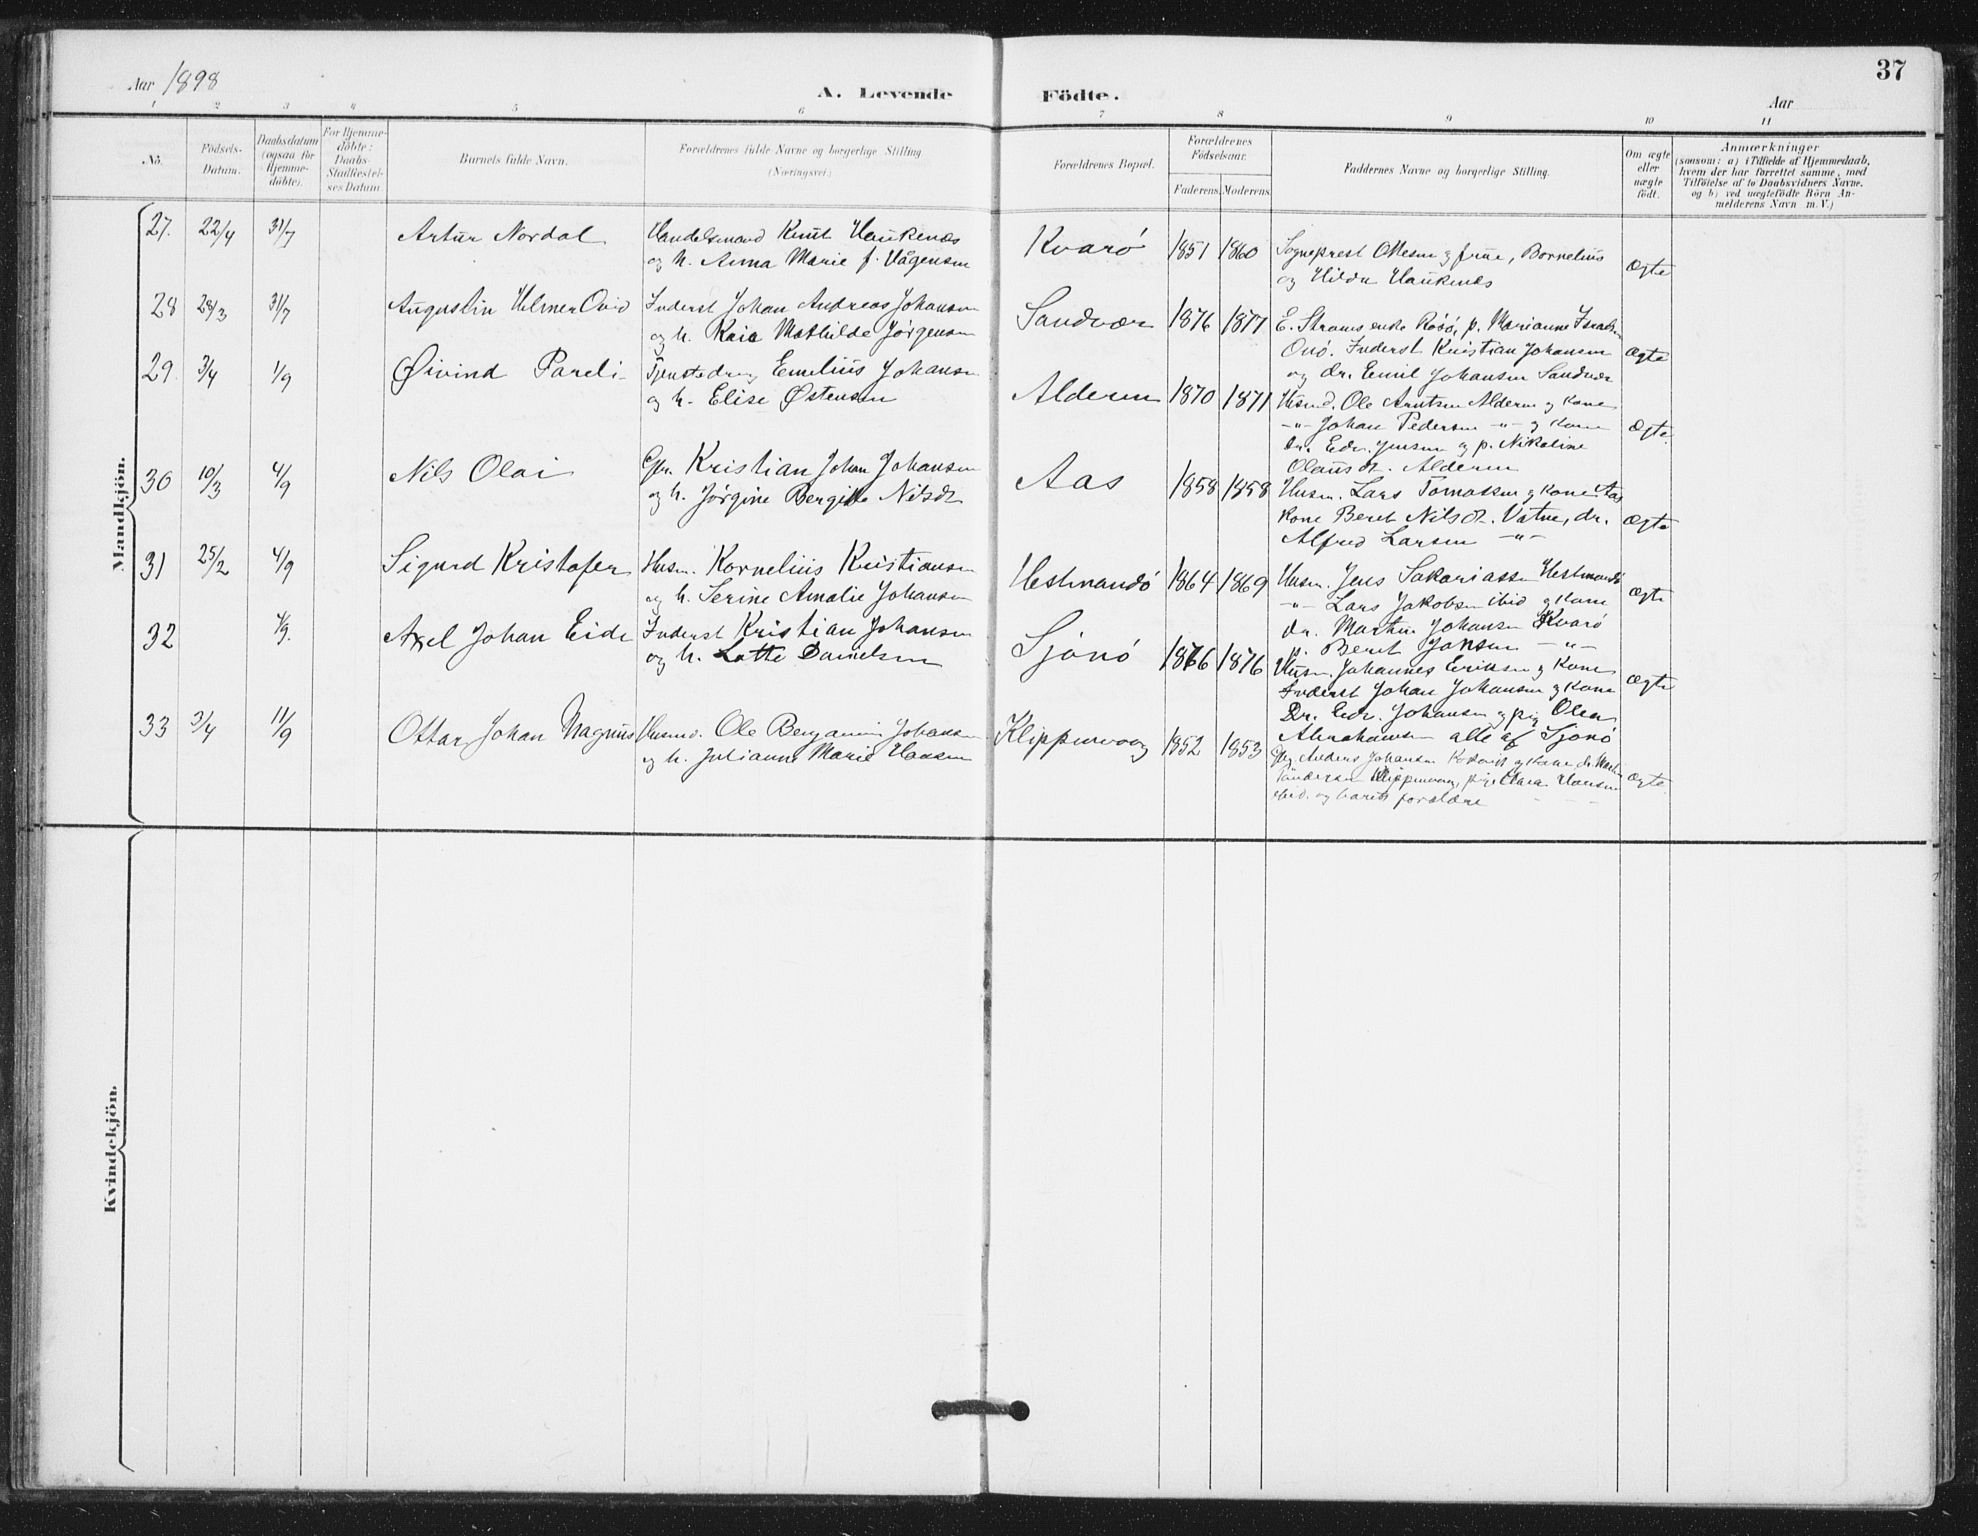 Aar 1898
A. Levende Födte.
37
Aar
1 2 3 4 5 6 7 8 9 10 11
No.
Födsels-Datum.
Daabsdatum (ogsaa for Hjemme-döbte).
For Hjemme-döbte: Daabs-Stadfæstel-ses Datum
Barnets fulde Navn.
Forældrenes fulde Navne og borgerlige Stilling (Næringsvei.)
Forældrenes Bopæl.
Forældrenes Födselsaar.
Faderens Moderens
Faddernes Navne og borgerlige Stilling.
Om ægte eller uægte födt.
Anmærkninger
(saasom: a) i Tilfælde af Hjemmedaab,
hvem der har forrettet samme, med
Tilföielse af to Daabsvidners Navne.
og b) ved uægtefödte Börn An-
melderens Navn m. V.)
Mandkjön.
27. 22/4 31/7 Artur Nordal
Handelsmand Knut Haukenæs
og h. Anna Marie f. Vågensen
Kvarö 1851 1860
Sogneprest Ottesen og frue, Bornelius
og Hilda Haukenæs
Ægte
28 28/3 31/7 Augustin Hilmer Ovid
Inderst Johan Andreas Johansen
og h. Kaia Mathilde Jørgensen
Sandvær 1876 1877
E. Strøms enke Rösö, p. Marianne Israelsen
Onö. Inderst Kristian Johansen
og dr. Emil Johansen Sandvær
Ægte
29. 3/4 1/9 Øivind Pareli
Tjenstedreng Emelius Johansen
og h. Elise Østensen
Alderen 1870 1871
Husmd. Ole Arntsen Alderen og Kone
-"- Johan Pedersen -"- og Kone
dr. Edv. Jensen og p. Nikoline
Olausdt. Alderen
Ægte.
30 10/3 4/9 Nils Olai
Gbr. Kristian Johan Johansen
og h. Jörgine Bergitte Nilsdt
Aas 1858 1858
Husm. Lars Tomassen og Kone Aas
Kone Beret Nilsdt. Vatne, dr.
Alfred Larsen -"-
Ægte
31 25/2 4/9 Sigurd Kristofer
Husm. Kornelius Kristiansen
og h. Serine Amalie Johansen
Hestmandö 1864 1869
Husm. Jens Sakariassen Hestmandö
-"- Lars Jakobsen ibid og Kone
dr. Martin Johansen Kvarö
p. Beret Jonsen -"-
Ægte
32 4/9. Axel Johan Eide
Inderst Kristian Johansen
og h. Lotte Danielsen
Sjonö 1876 1876
Husm. Johannes Eriksen og Kone
Inderst Johan Johansen og Kone
Dr. Edv. Johansen og pig Olea
Abrahamsen alle af Sjonö
Ægte
33 3/4 11/9 Ottar Johan Magnus
Husmd. Ole Benjamin Johansen
og h. Julianna Marie Hansen
Klippenvaag 1852 1853
Gbr. Anders Johansen og Kone dr. Martin
Andersen Klippenvaag, pige Hansen
ibid. og barnets forældre
Ægte
Kvindekjön.